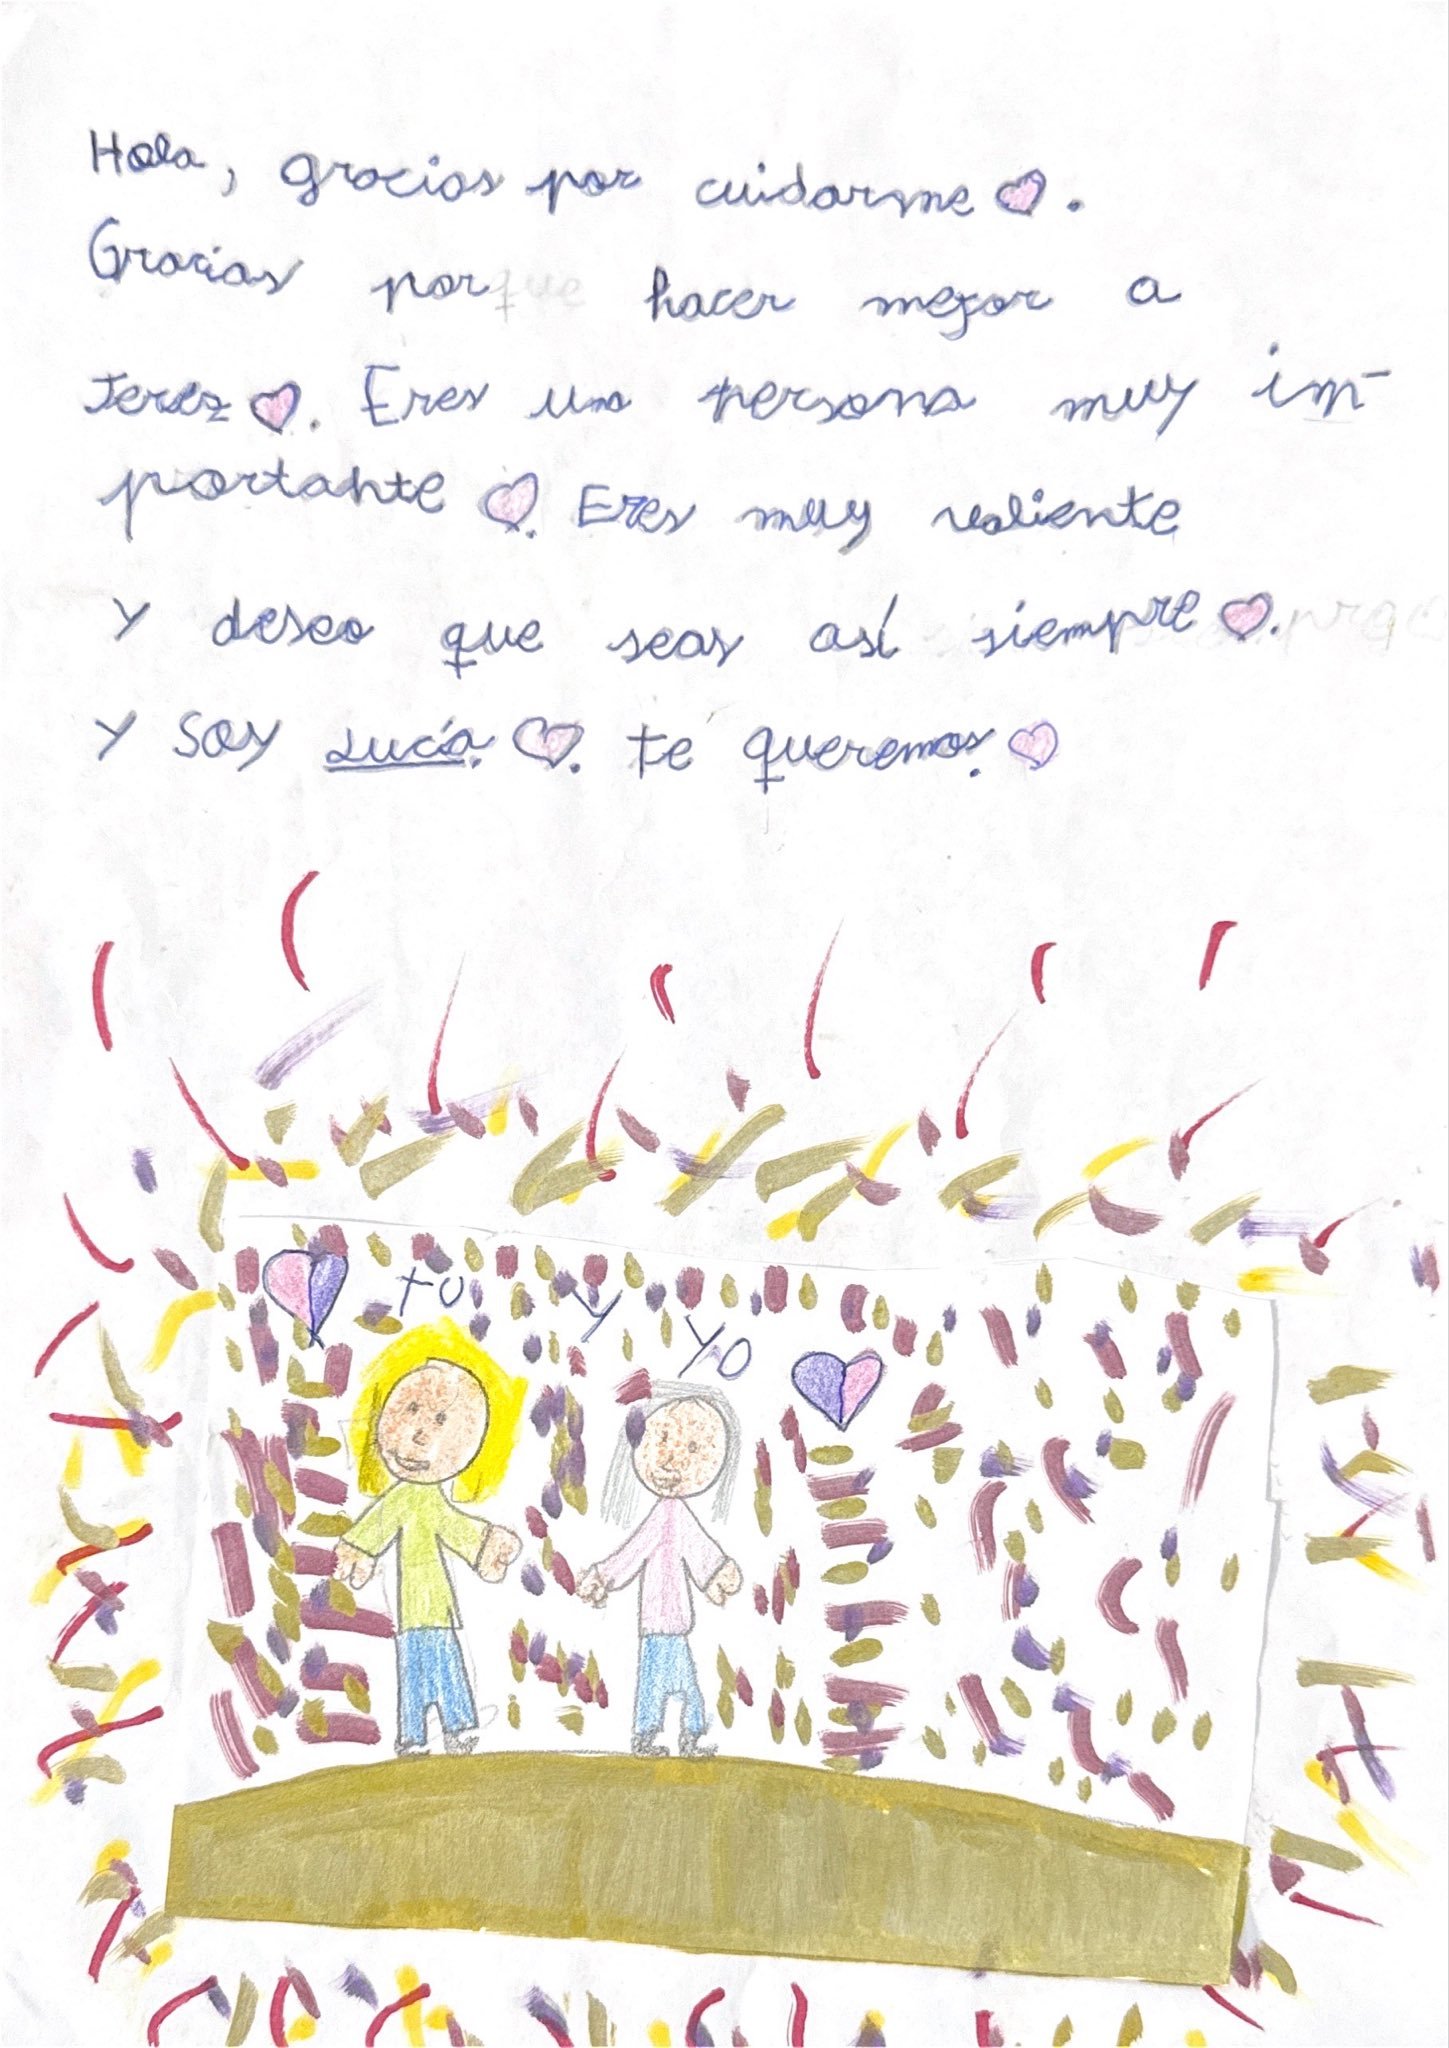 Hola, gracias por cuidarme ♥.
Gracias por hacer mejor a
Jerez ♥. Eres una persona muy im-
portante ♥. Eres muy valiente
y deseo que seas así siempre ♥.
Y soy Lucía. ♥. te queremos. ♥
♥ tu y yo ♥